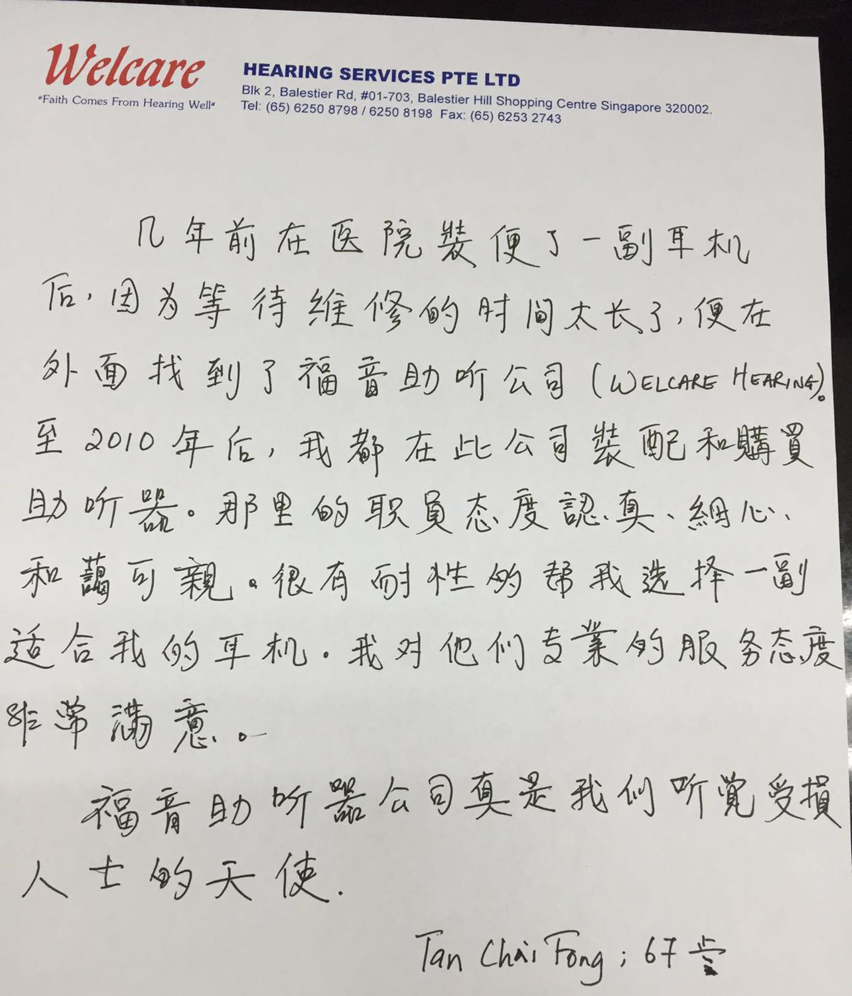 Welcare
"Faith Comes From Hearing Well"
HEARING SERVICES PTE LTD
Blk 2, Balestier Rd, #01-703, Balestier Hill Shopping Centre Singapore 320002.
Tel: (65) 6250 8798 / 6250 8198 Fax: (65) 6253 2743
几年前在医院裝便了一副耳机
后,因为等待維修的时间太长了,便在
外面找到了福音助听公司(WELCARE HEARING)。
至2010年后,我都在此公司裝配和購買
助听器。那里的职員态度認真、細心、
和藹可親。很有耐性的帮我选择一副
适合我的耳机.我对他们专業的服务态度
非常满意。
福音助听器公司真是我们听觉受損
人士的天使.
Tan Chai Fong; 67岁